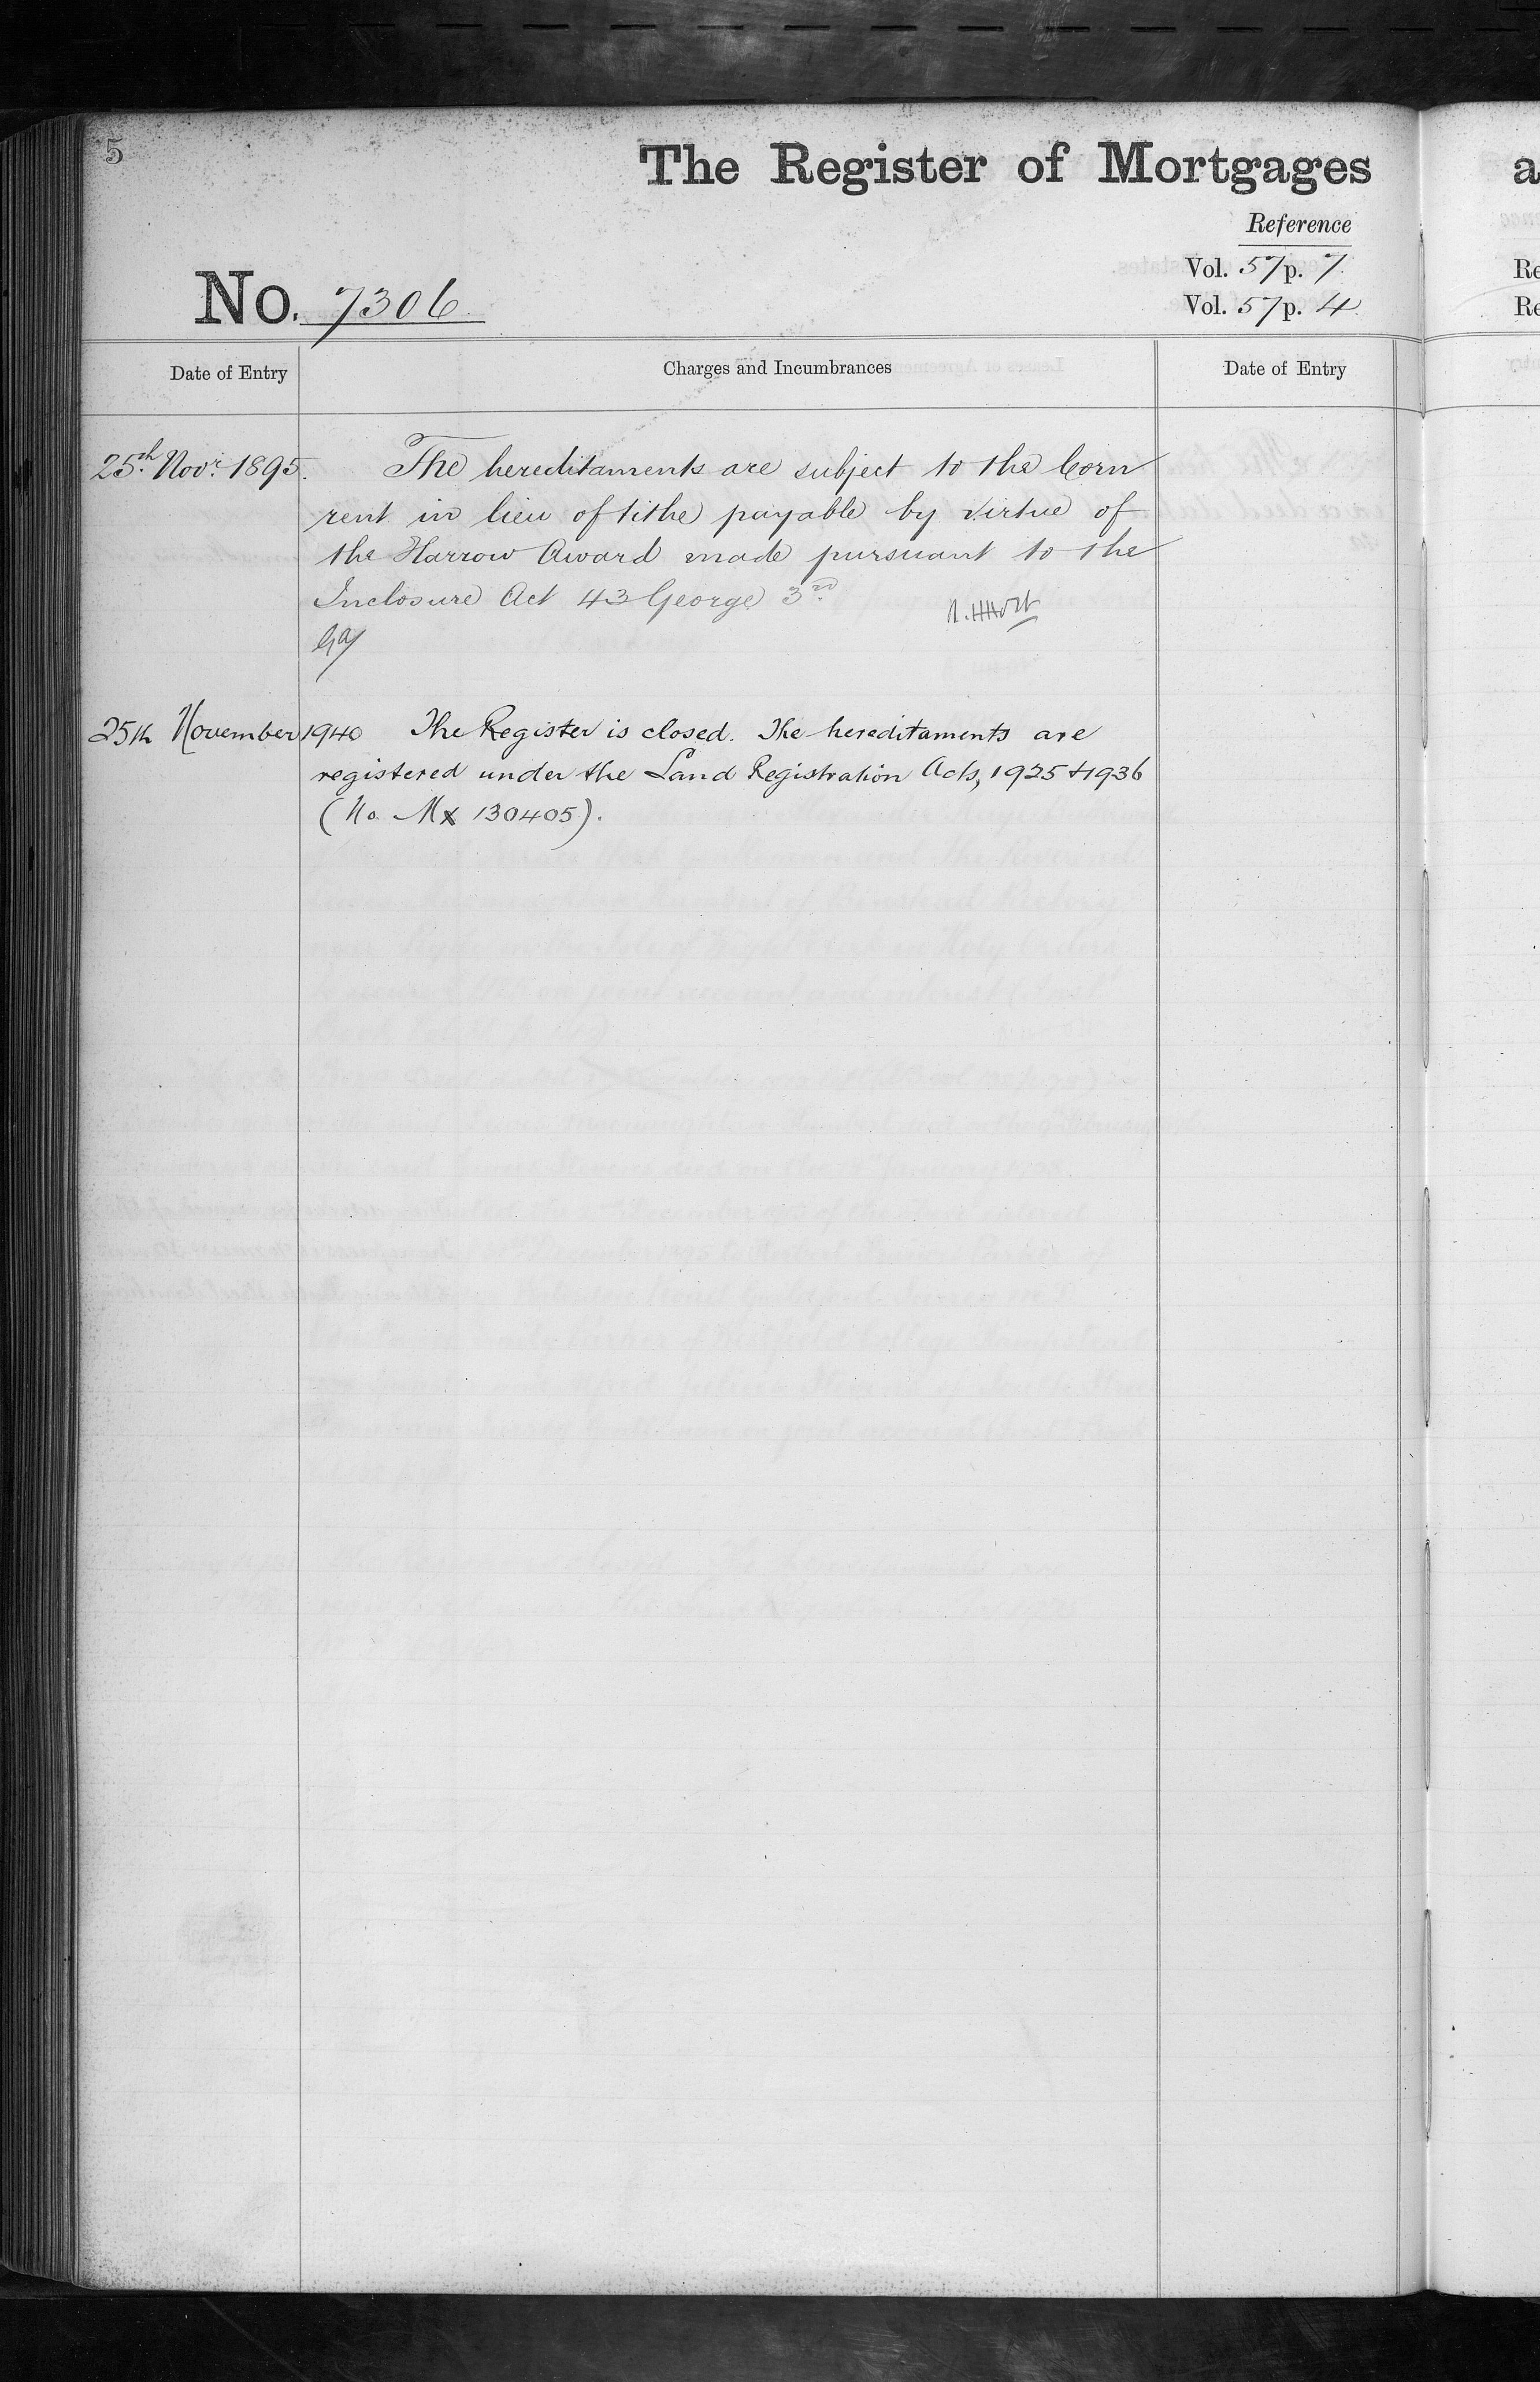 5
The Register of Mortgages
a
Reference
Vol. 57 p. 7.
Re
No. 7306.
Vol. 57 p. 4
Re
Date of Entry
Charges and Incumbrances
Date of Entry
25th. Novr. 1895.
The hereditaments are subject to the Corn
rent in lieu of tithe payable by virtue of
the Harrow Award made pursuant to the
Inclosure Act 43 George 3rd.
25th November 1940 The Register is closed. The hereditaments are
registered under the Land Registration Acts, 1925 & 1936
(No. Mx 130405).